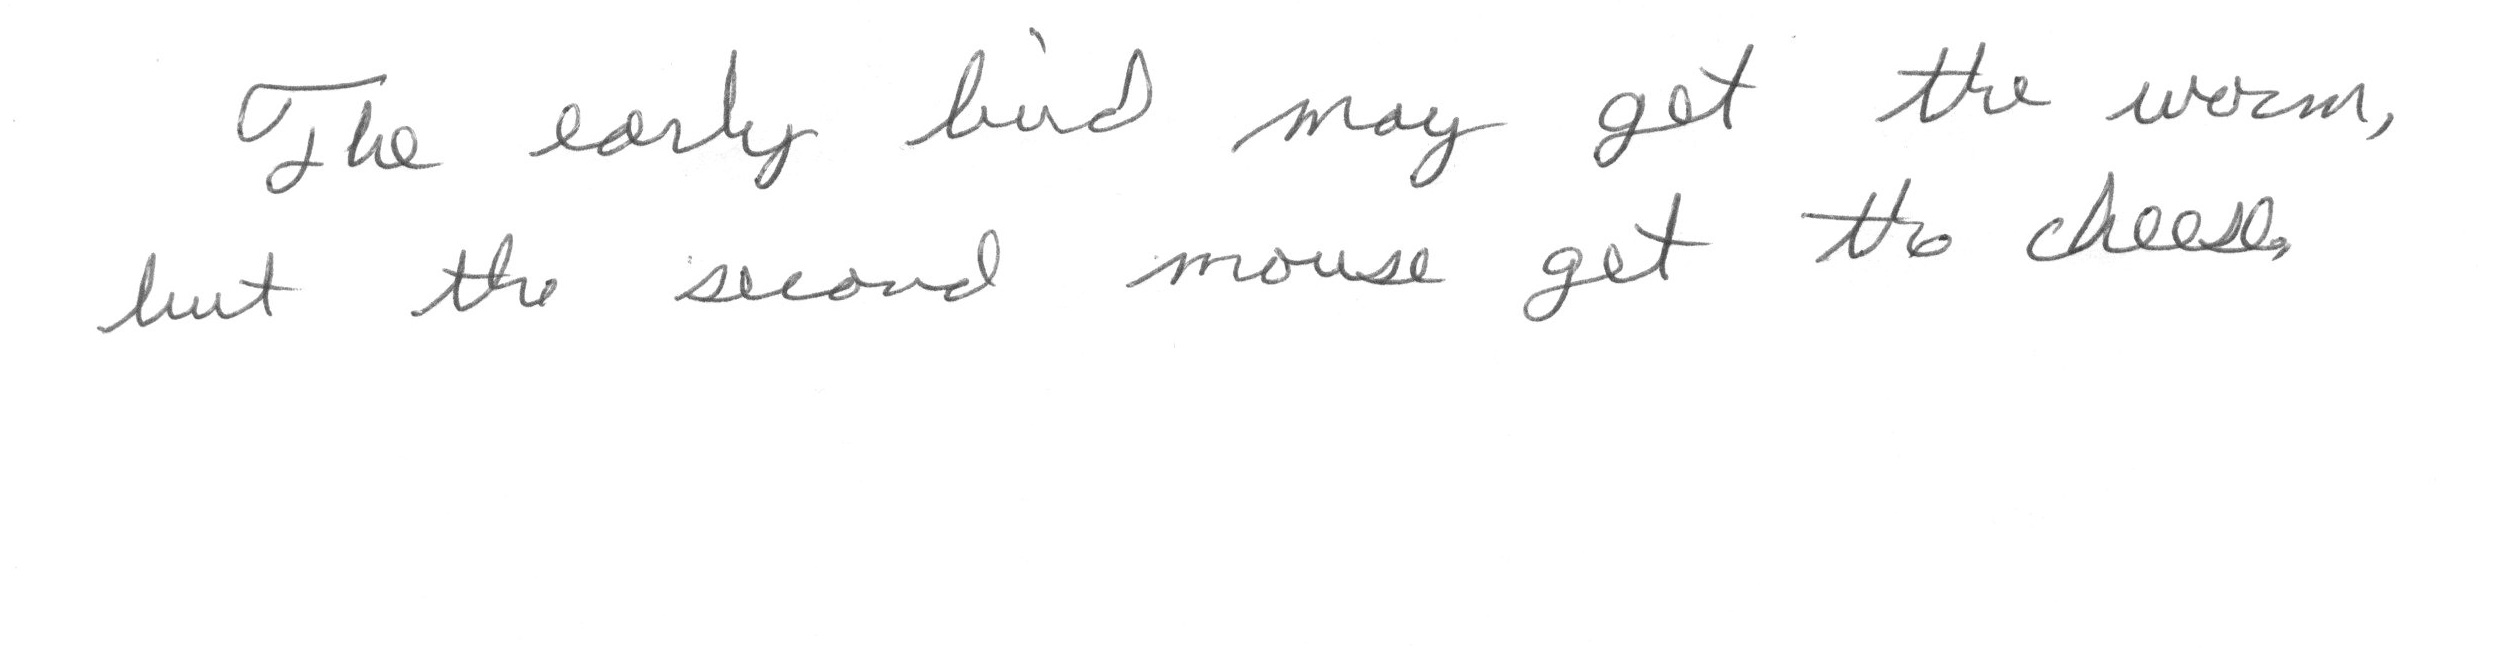 The early bird may get the worm,
but the second mouse get the cheese.